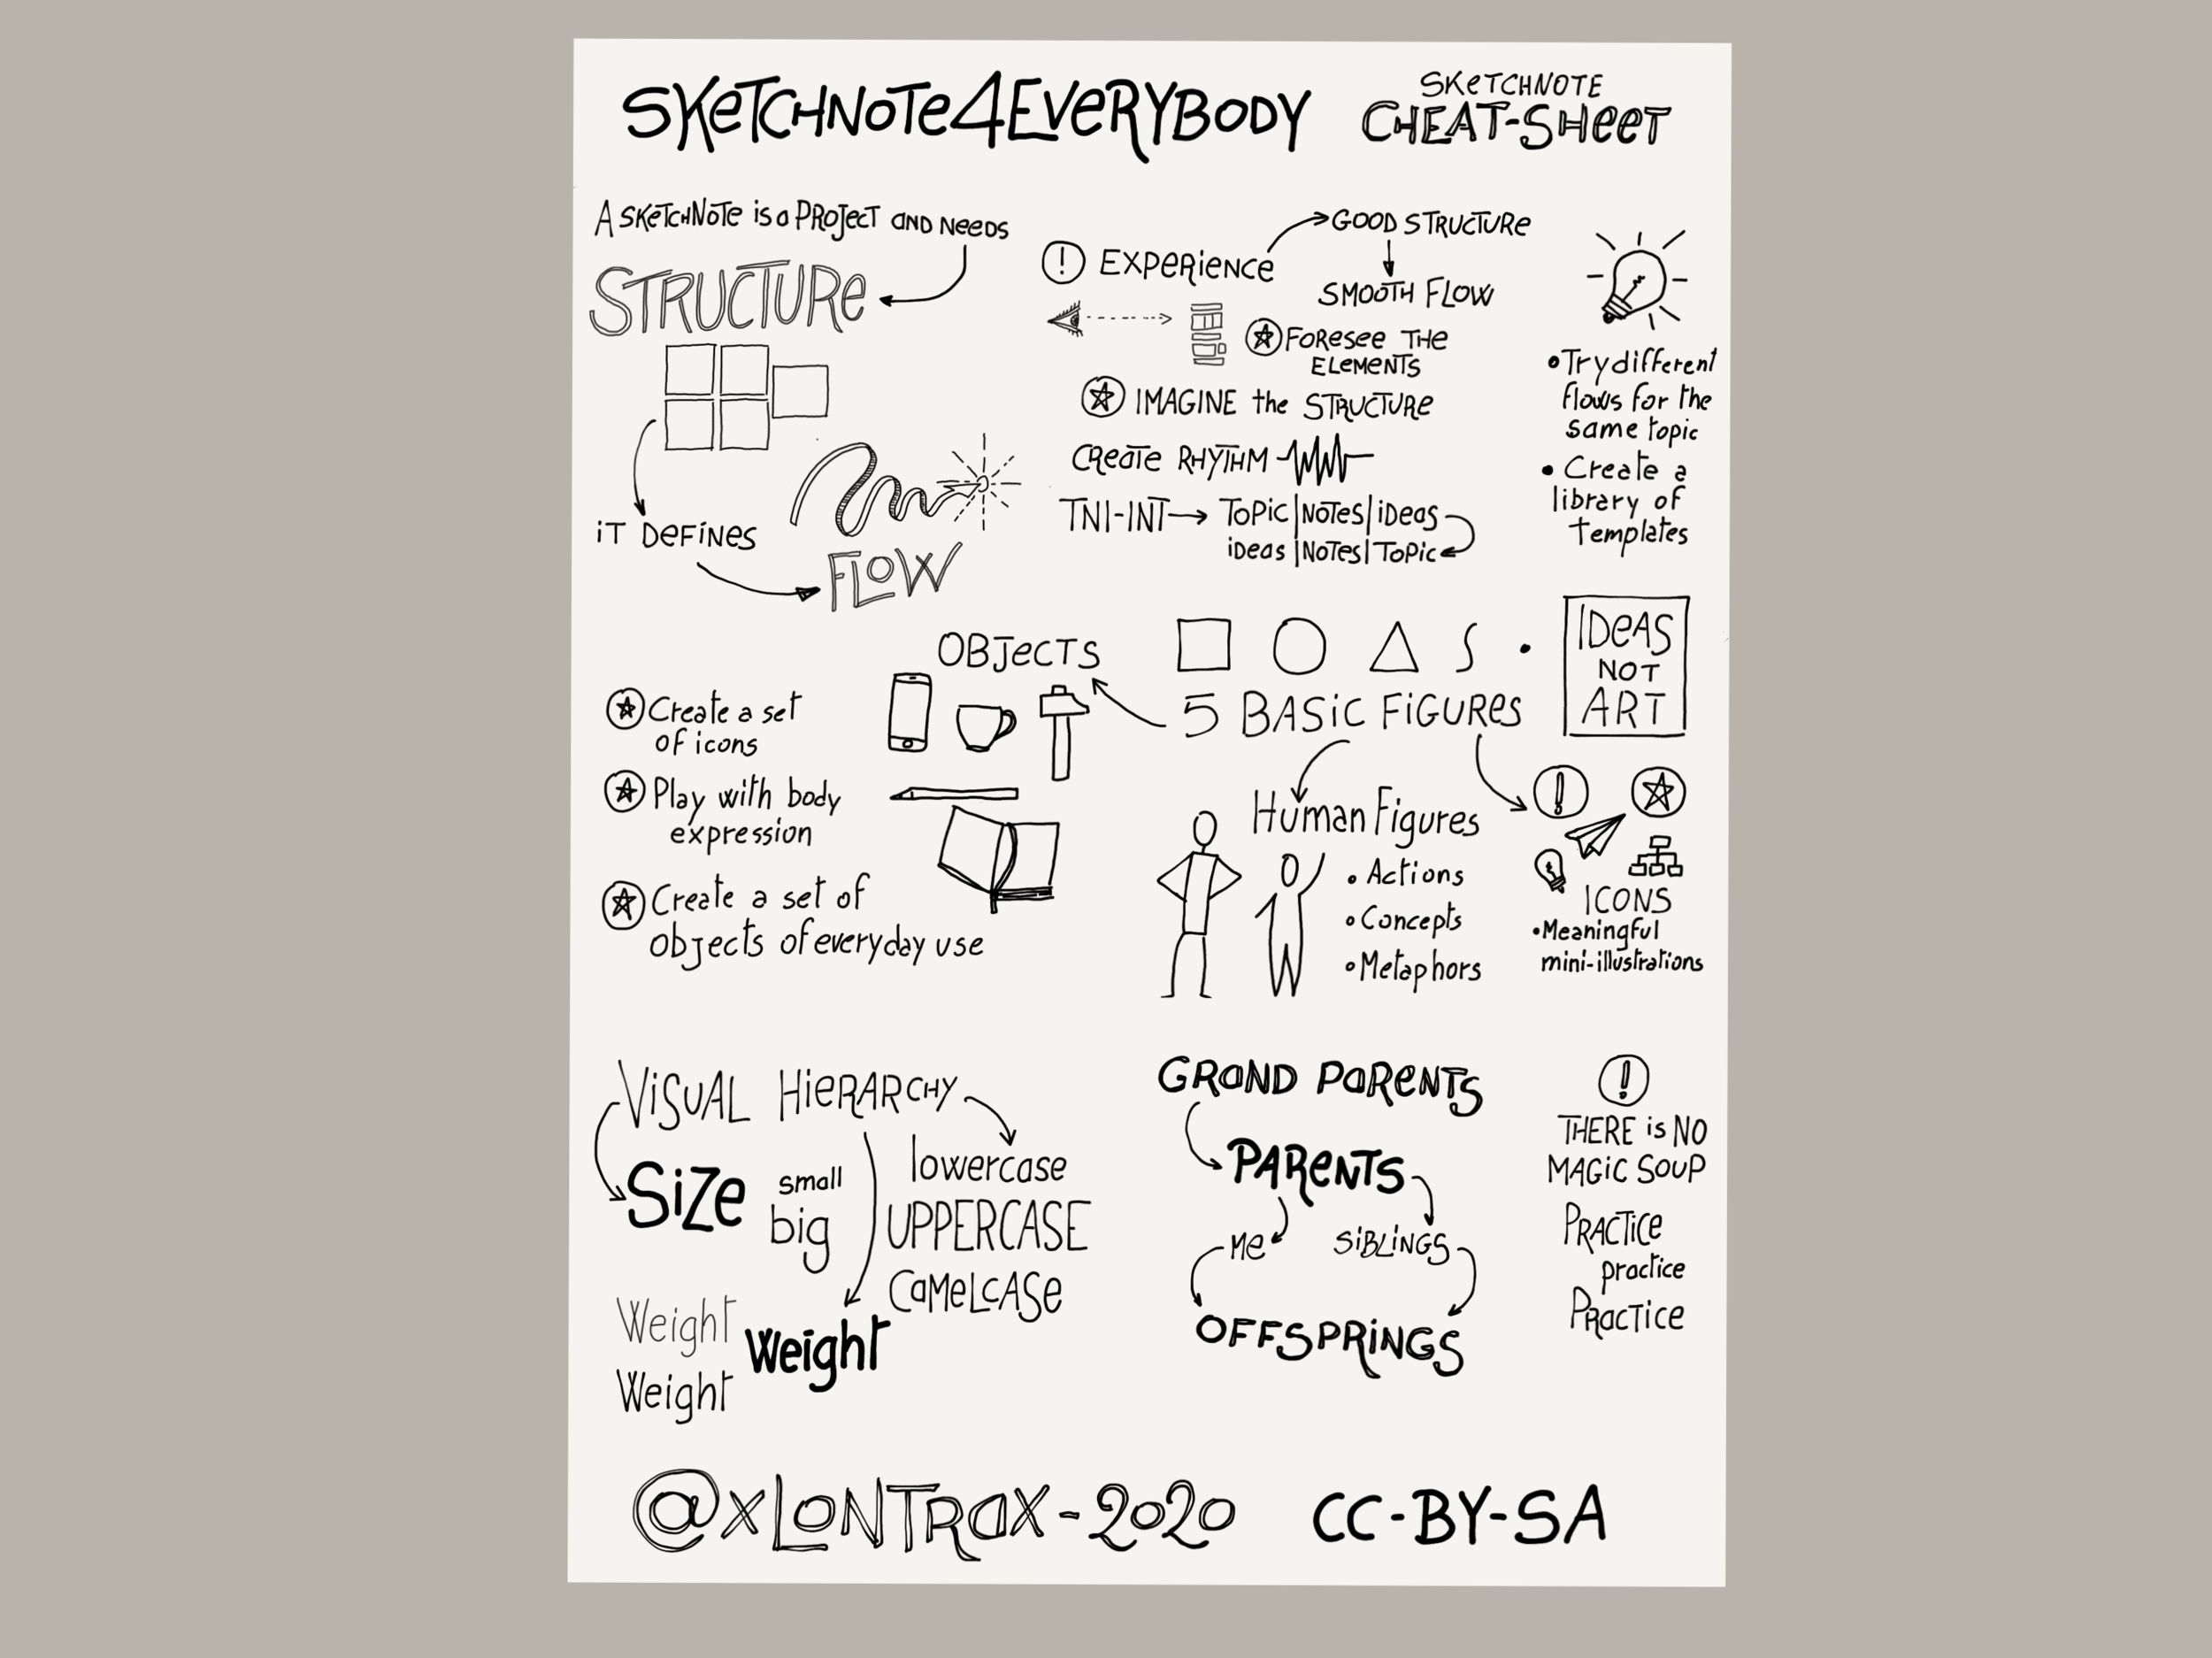 SKeTCHNoTe4EVeRYBODY
SKeTCHNOTE
CHEAT-SHeeT
A SKeTCHNoTe is a PRoJecT AND NeeDS
STRUCTURe
iT DeFiNeS
FLOW
! EXPeRieNCe
GOOD STRUCTURe
SMOOTH FLOW
FoReSee THe
ELeMeNTS
IMAGINE the STRUCTURe
CReaTe RHYTHM
TNI-INT → ToPic|NoTeS|iDeas
iDeas|NoTeS|ToPic
• Try different
flows for the
same topic
• Create a
library of
templates
OBJecTS
5 BASiC FiGURes
IDeAS
NOT
ART
Create a set
of icons
Play with body
expression
Create a set of
objects of everyday use
Human Figures
• Actions
• Concepts
• Metaphors
!
ICONS
• Meaningful
mini-illustrations
ViSUAL HieRARCHY
SiZe
small
big
lowercase
UPPERCASE
CaMeLcASe
Weight
Weight
Weight
GRaND PaReNTS
PARENTS
Me
SiBLiNGS
OFFSPRiNGS
!
THERE is NO
MAGiC SOUP
PRACTiCe
practice
PRacTice
@XLoNTRaX-2020
CC-BY-SA